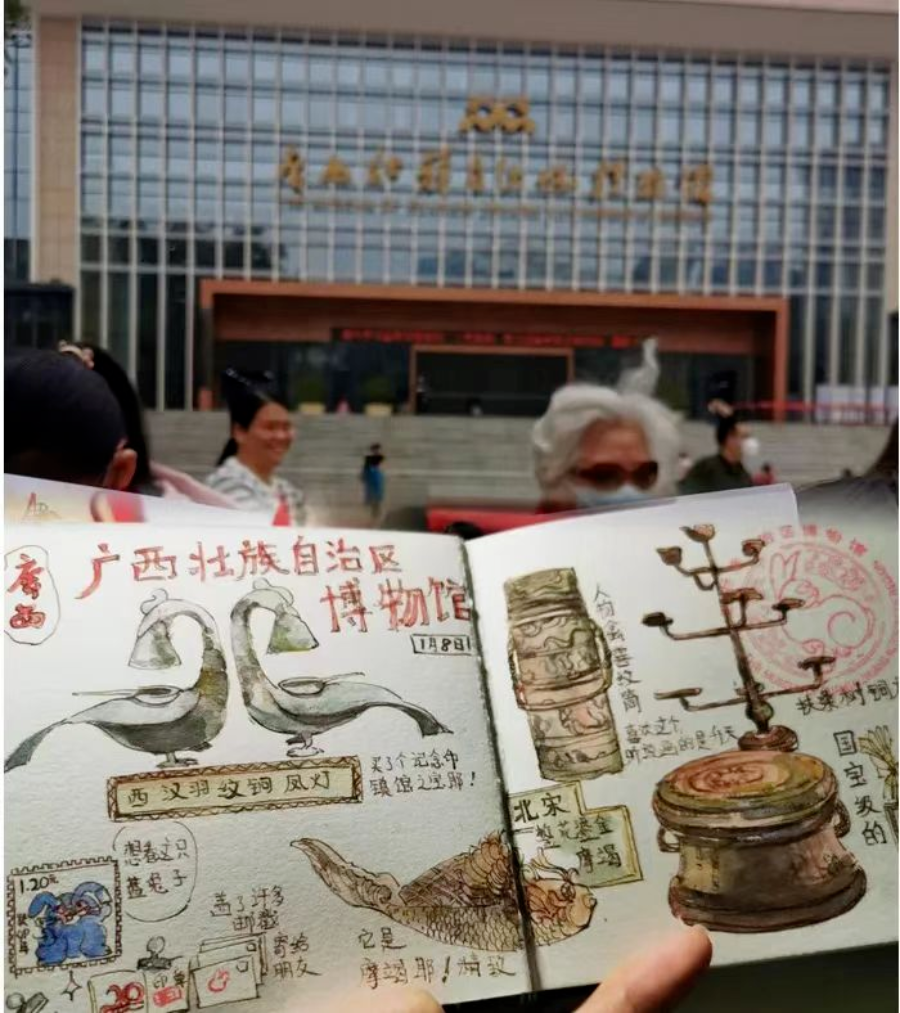 广西壮族自治区博物馆
广西
广西壮族自治区
博物馆
1月8日
西汉羽纹铜凤灯
买了个记念币
镇馆之宝耶!
想着这只
蓝兔子
1.20元
癸卯年
盖了许多
邮戳
寄给
朋友
它是
摩竭耶!精致
喜欢这个
听说画的是升天
扶桑树铜
北宋
鎏金
摩竭
国宝级的